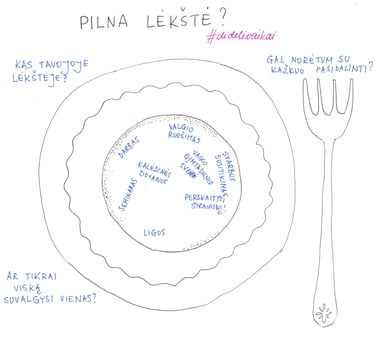 PILNA LĖKŠTĖ?
#didelivaikai
KAS TAVOJOJE
LĖKŠTĖJE?
GAL NORĖTUM SU
KAŽKUO PASIDALINTI?
DARBAS
VALGIO
RUOŠIMAS
SVARBUS
SUSITIKIMAS
VAIKO
GIMTADIENIO
ŠVENTĖ
KALĖDINĖS
DOVANOS
SEMINARAS
PERSKAITYTI
STRAIPSNĮ
LIGOS
AR TIKRAI
VISKĄ
SUVALGYSI VIENAS?